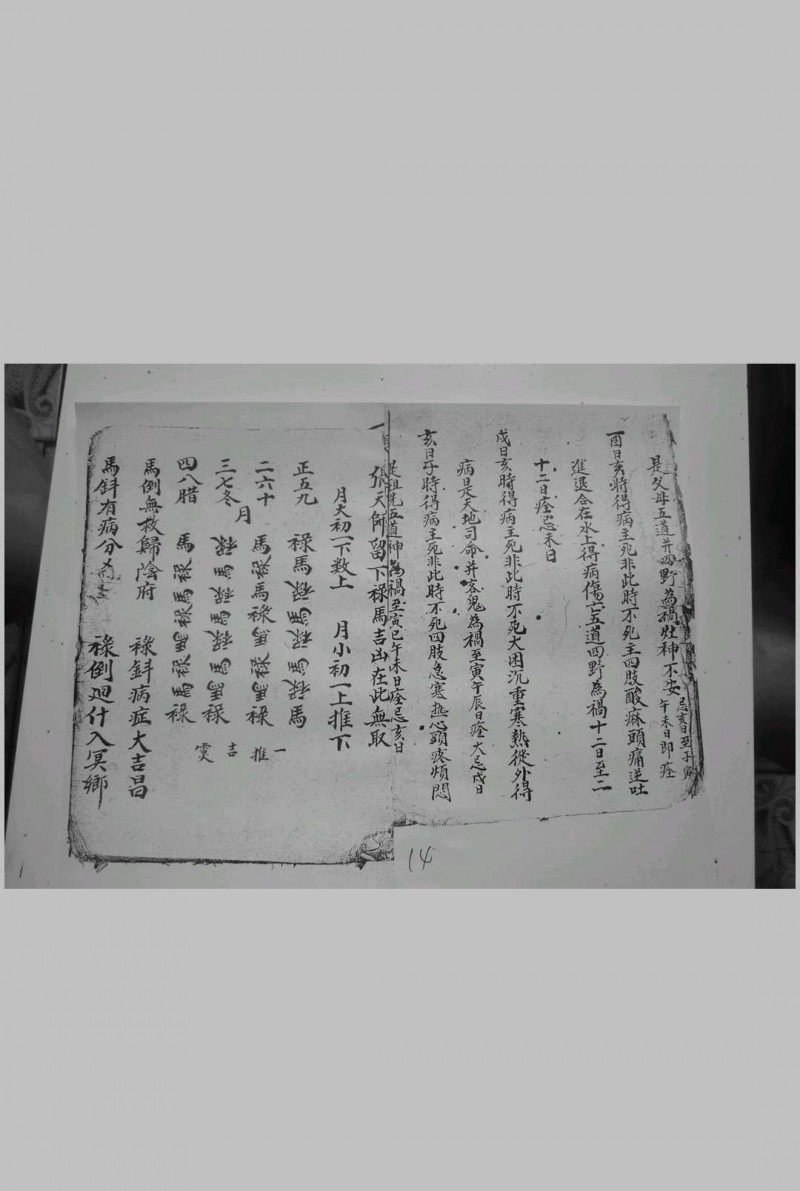 是父母五道并四野為禍灶神不安忌亥日至子寅
午未日即痊
酉日亥時得病主死非此時不死主四肢酸麻頭痛逆吐
進退合在水上得病傷亡五道四野為禍十二日至二
十二日痊忌未日
戌日亥時得病主死非此時不死大困沉重寒熱從外得
病是天地司命并客鬼為禍至寅午辰日痊大忌戌日
亥日子時得病主死非此時不死四肢急寒熱心頭疼煩悶
是祖先五道神為禍至寅巳午未日痊忌亥日
張天師留下祿馬吉凶在此無取
月大初一下数上 月小初一上推下
正五九 祿馬祿馬祿馬祿馬
二六十 馬祿馬祿馬祿馬祿 一推
月 吉
三七冬 祿馬祿馬祿馬祿
四八腊 馬祿馬祿馬祿馬祿
馬倒無救歸陰府 祿斜病症大吉昌
馬斜有病分 祿倒廻什入冥鄉
14